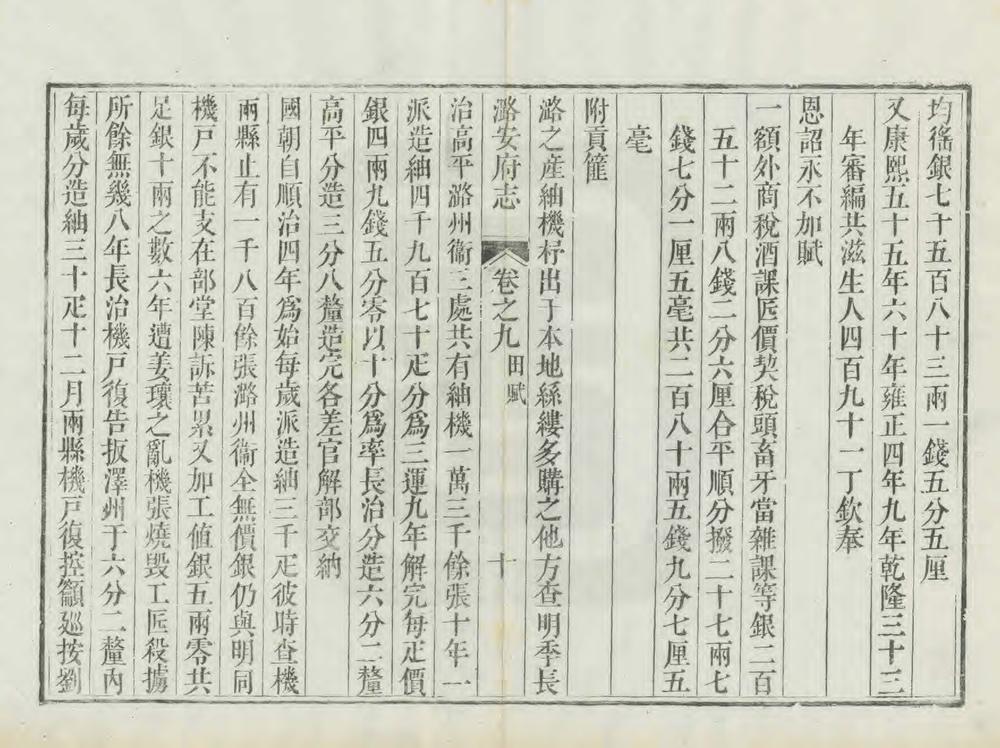 均徭銀七千五百八十三兩一錢五分五厘
又康熙五十五年六十年雍正四年九年乾隆三十三
年審編共滋生人四百九十一丁欽奉
恩詔永不加賦
一額外商稅酒課匠價契稅頭畜牙當雜課等銀二百
五十二兩八錢二分六厘合平順分撥二十七兩七
錢七分一厘五毫共二百八十兩五錢九分七厘五
毫
附貢篚
潞之產紬機杼出于本地絲縷多購之他方查明季長
潞安府志 卷之九 田賦 十
治高平潞州衞三處共有紬機一萬三千餘張十年一
派造紬四千九百七十疋分爲三運九年解完每疋價
銀四兩九錢五分零以十分爲率長治分造六分二釐
高平分造三分八釐造完各差官解部交納
國朝自順治四年爲始每歲派造紬三千疋彼時查機
兩縣止有一千八百餘張潞州衞全無價銀仍與明同
機戸不能支在部堂陳訴苦累又加工値銀五兩零共
足銀十兩之數六年遭姜瓖之亂機張燒毀工匠殺擄
所餘無幾八年長治機戸復告扳澤州于六分二釐內
每歲分造紬三十疋十二月兩縣機戸復控籲廵按劉